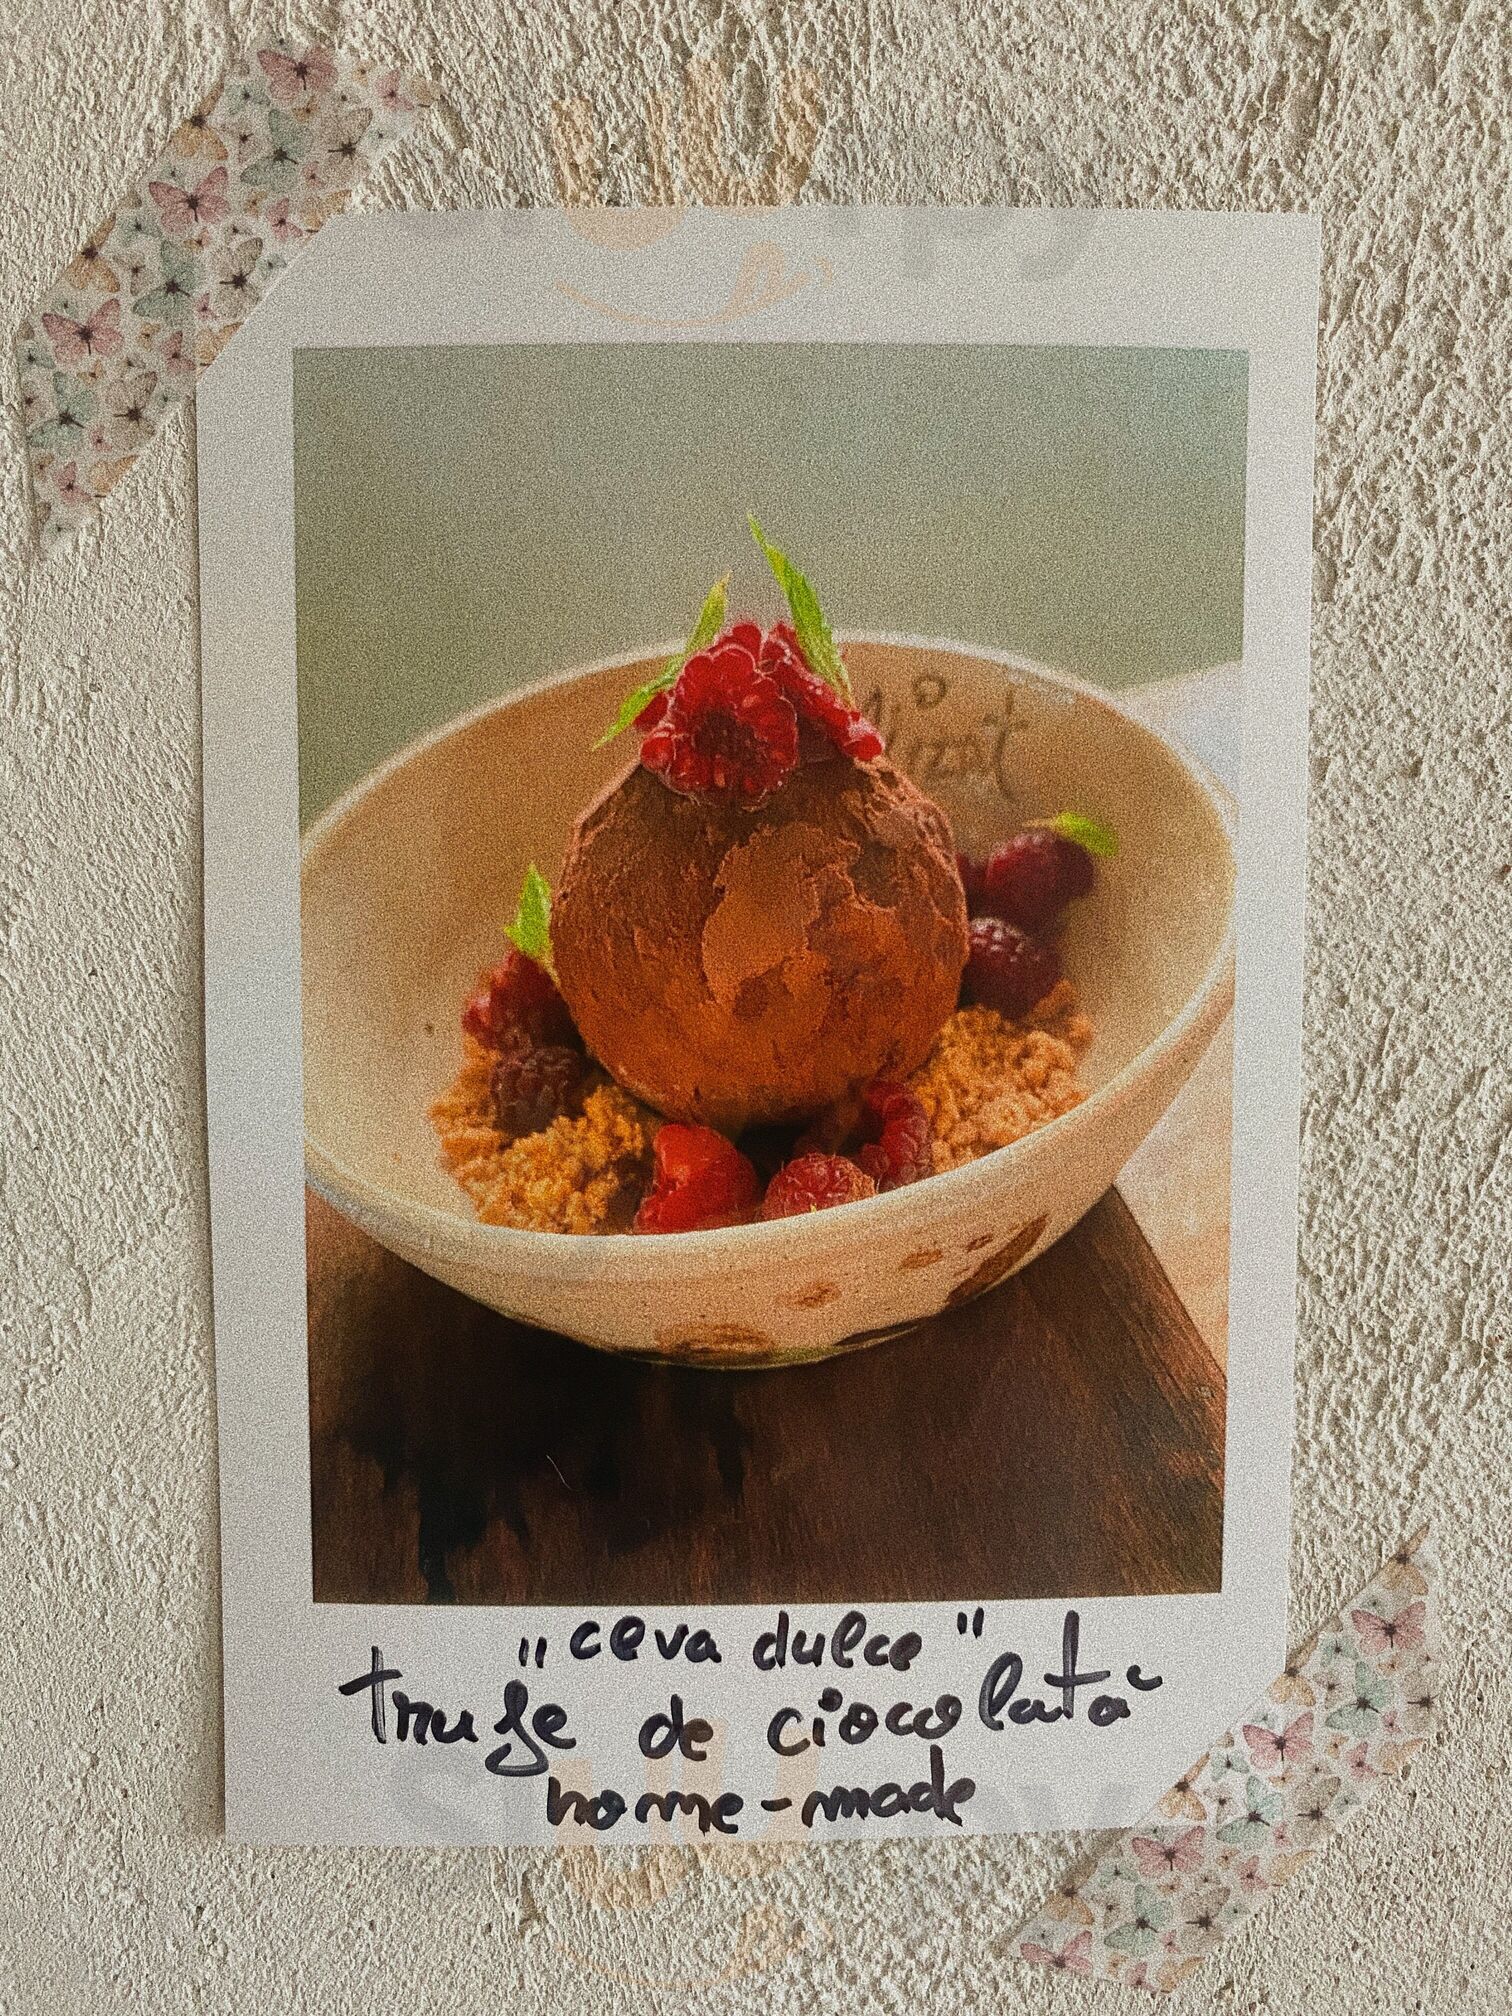 „ceva dulce"
trufe de ciocolată
home-made